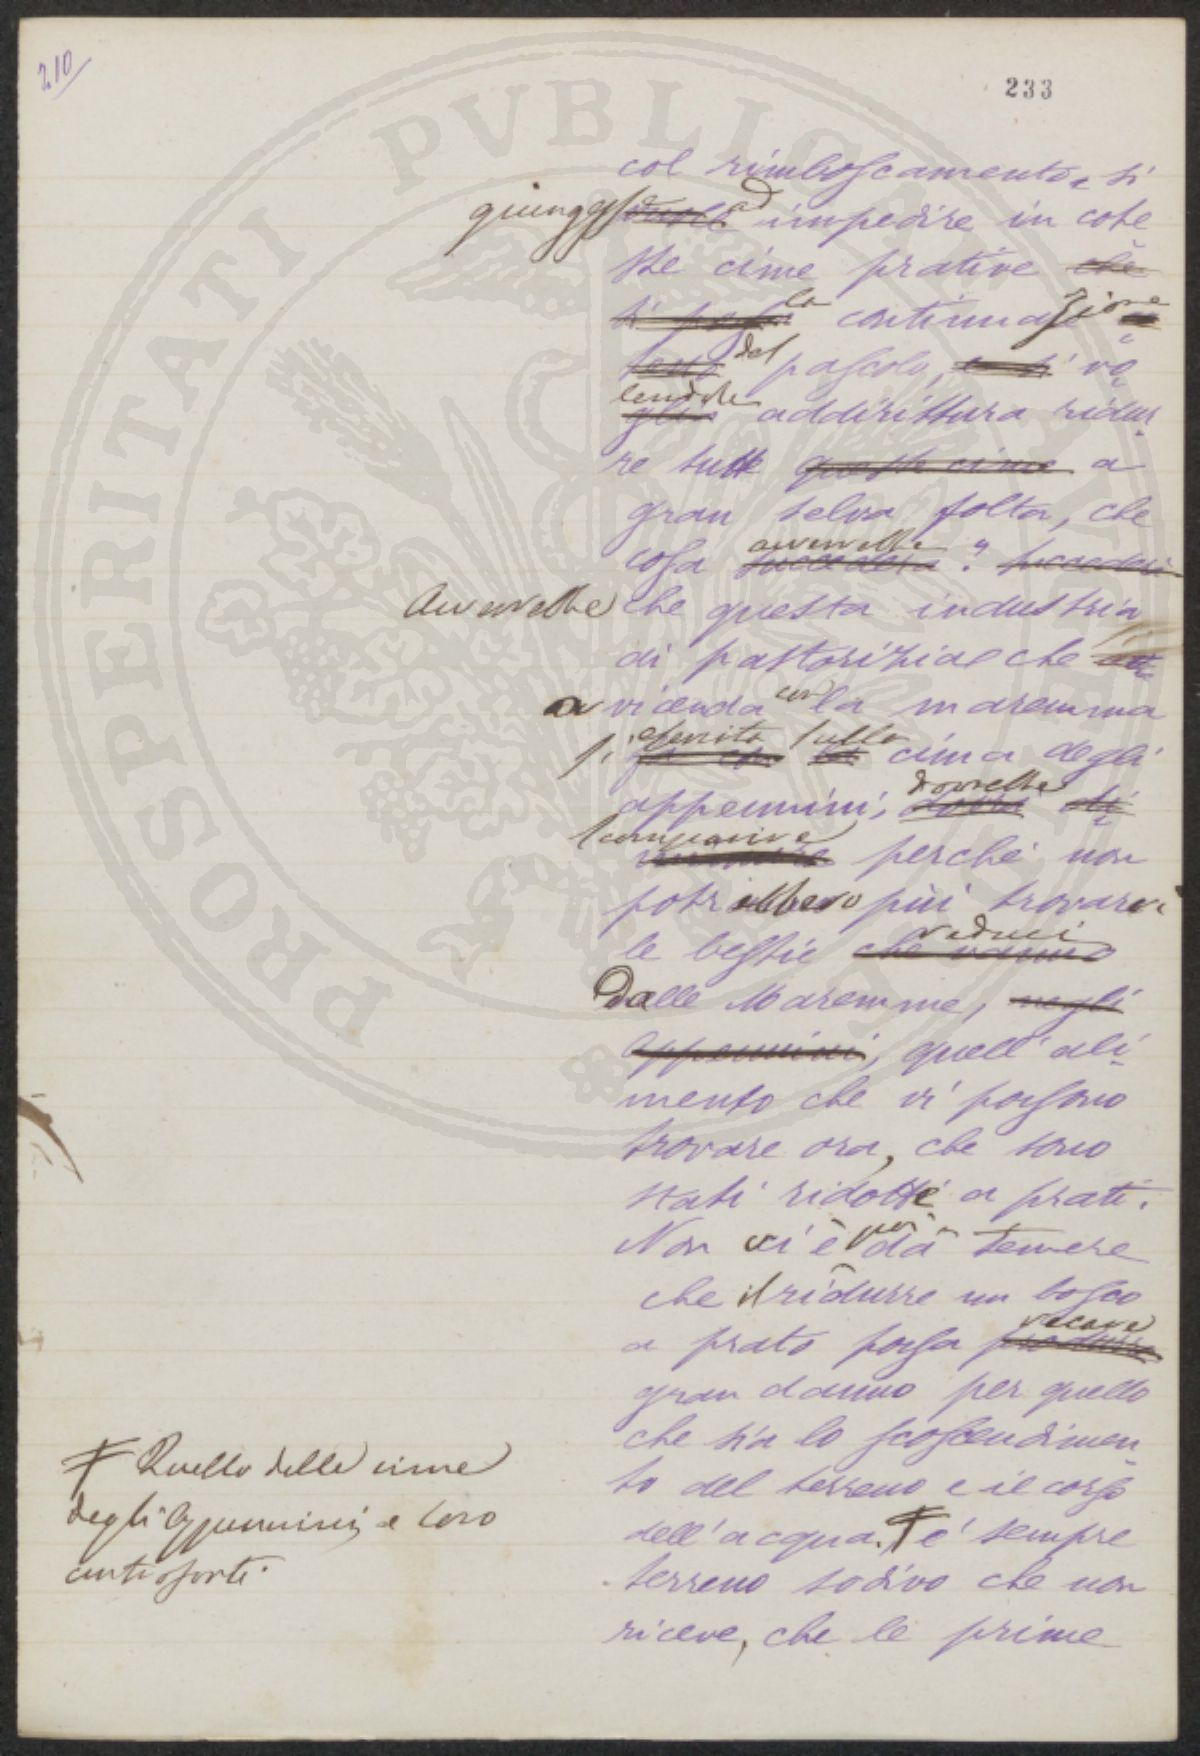 210
233
col rimboscamento, si
giungesse ad impedire in cote
ste cime prative che
la continuazione
del pascolo, e si vo
lendole
addirittura ridur
re tutte queste cime a
gran selva folta, che
cosa avverrebbe? succederebbe
Avverrebbe che questa industria
di pastorizia che
a vicenda con la maremma
si esercita sulla cima degli
appennini, dovrebbe
scomparire perché non
potrebbero più trovarvi
le bestie che vanno reduci
Dalle Maremme, negli
Appennini, quell'ali
mento che vi possono
trovare ora, che sono
stati ridotti a prati.
Non vi è poi da temere
che il ridurre un bosco
a prato possa produrre recare
gran danno per quello
che sia lo scoscendimen
to del terreno e il corso
dell'acqua. È sempre
terreno sodivo che non
riceve, che le prime
Quello delle cime
degli Appennini, e loro
antiforti.